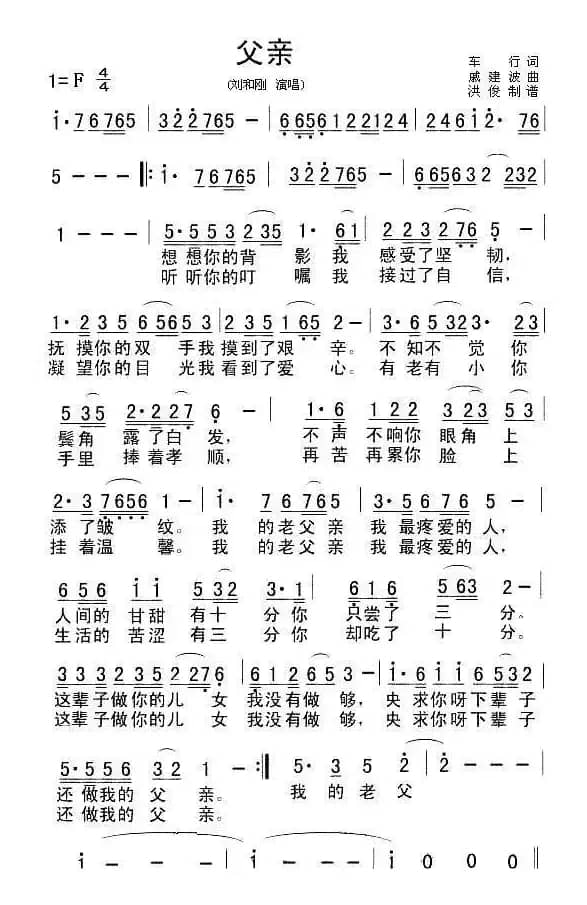 父亲
(刘和刚 演唱)
车 行词
戚建波曲
洪俊制谱
1=F 4/4
i·76765 | 322765 | 66561 2212124 | 2461 2· 76
5 - - - |: i·76765 | 322765 | 66565632 2 232
1 - - - | 5·553 235 1· 61 | 223 2276 5 -
想想你的背 影我 感受了坚 韧,
听听你的叮 嘱我 接过了自 信,
1·235 6556 53 | 2235 165 2 - | 3·65 323· 23
抚摸你的双 手我摸到了艰 辛。不知不 觉你
凝望你的目 光我看到了爱 心。有老有 小你
535 2·227 6 - | 1·6 122 323 53
鬓角 露了白 发, 不声 不响你 眼角上
手里 捧着孝 顺, 再苦 再累你 脸上
2·3 7656 1 - | i·7 6765 | 3·5676 5
添了皱 纹。我 的老父亲 我最疼爱的人,
挂着温 馨。我 的老父亲 我最疼爱的人,
656 i i 532 3·1 | 616 2 563 2 -
人间的 甘甜 有十 分你 只尝了 三 分。
生活的 苦涩 有三 分你 却吃了 十 分。
3332352 276 | 612653 - | i·6ii 6532
这辈子做你的儿 女 我没有做 够,央 求你呀下辈子
这辈子做你的儿 女 我没有做 够,央 求你呀下辈子
5·556 32 1 - :| 5·3 5 2 | 2 - - i
还做我的 父 亲。 我 的 老 父
还做我的 父 亲。
i - - - | i - - - | i - - - | i 0 0 0 ‖